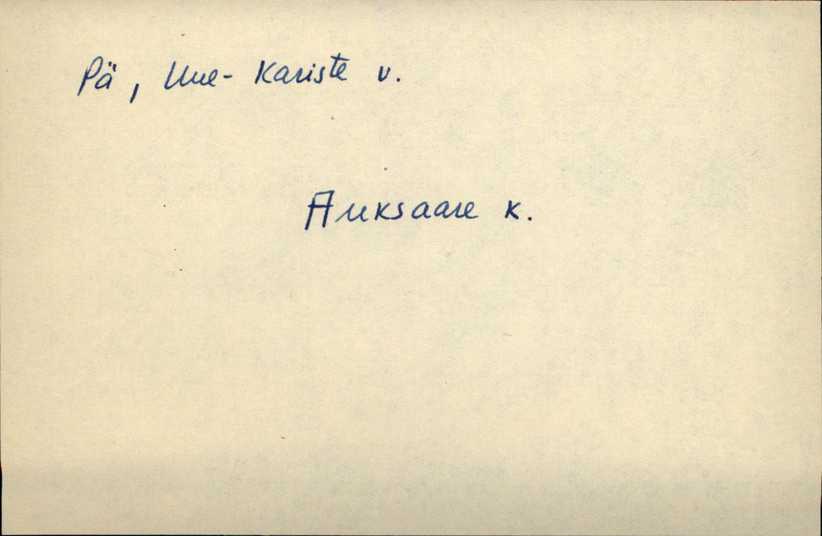 Pä, Uue-Kariste v.
Auksaare k.